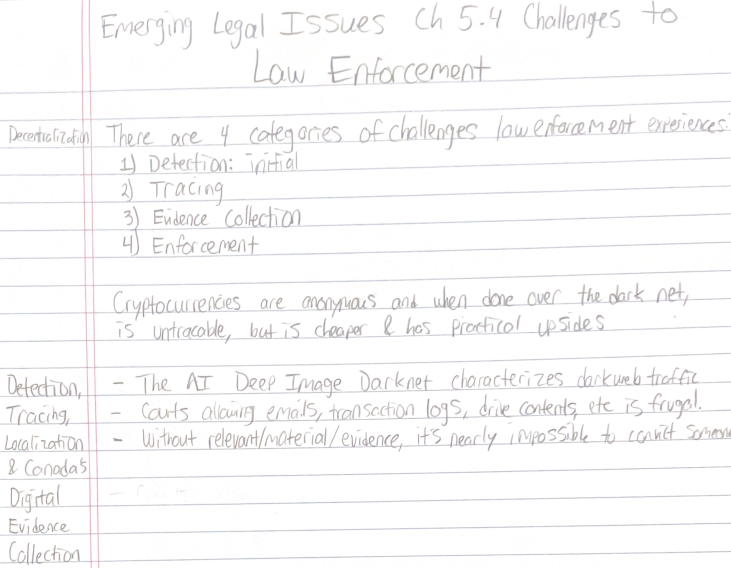 Emerging Legal Issues Ch 5.4 Challenges to
Law Enforcement
Decentralization There are 4 categories of challenges law enforcement experiences:
1) Detection: initial
2) Tracing
3) Evidence Collection
4) Enforcement
Cryptocurrencies are anonymous and when done over the dark net,
is untracable, but is cheaper & has practical upsides
Detection, - The AI Deep Image Darknet characterizes darkweb traffic
Tracing, - Courts allowing emails, transaction logs, drive contents, etc is frugal.
Localization - Without relevant/material/evidence, it's nearly impossible to convict
& Canada's
Digital -
Evidence
Collection